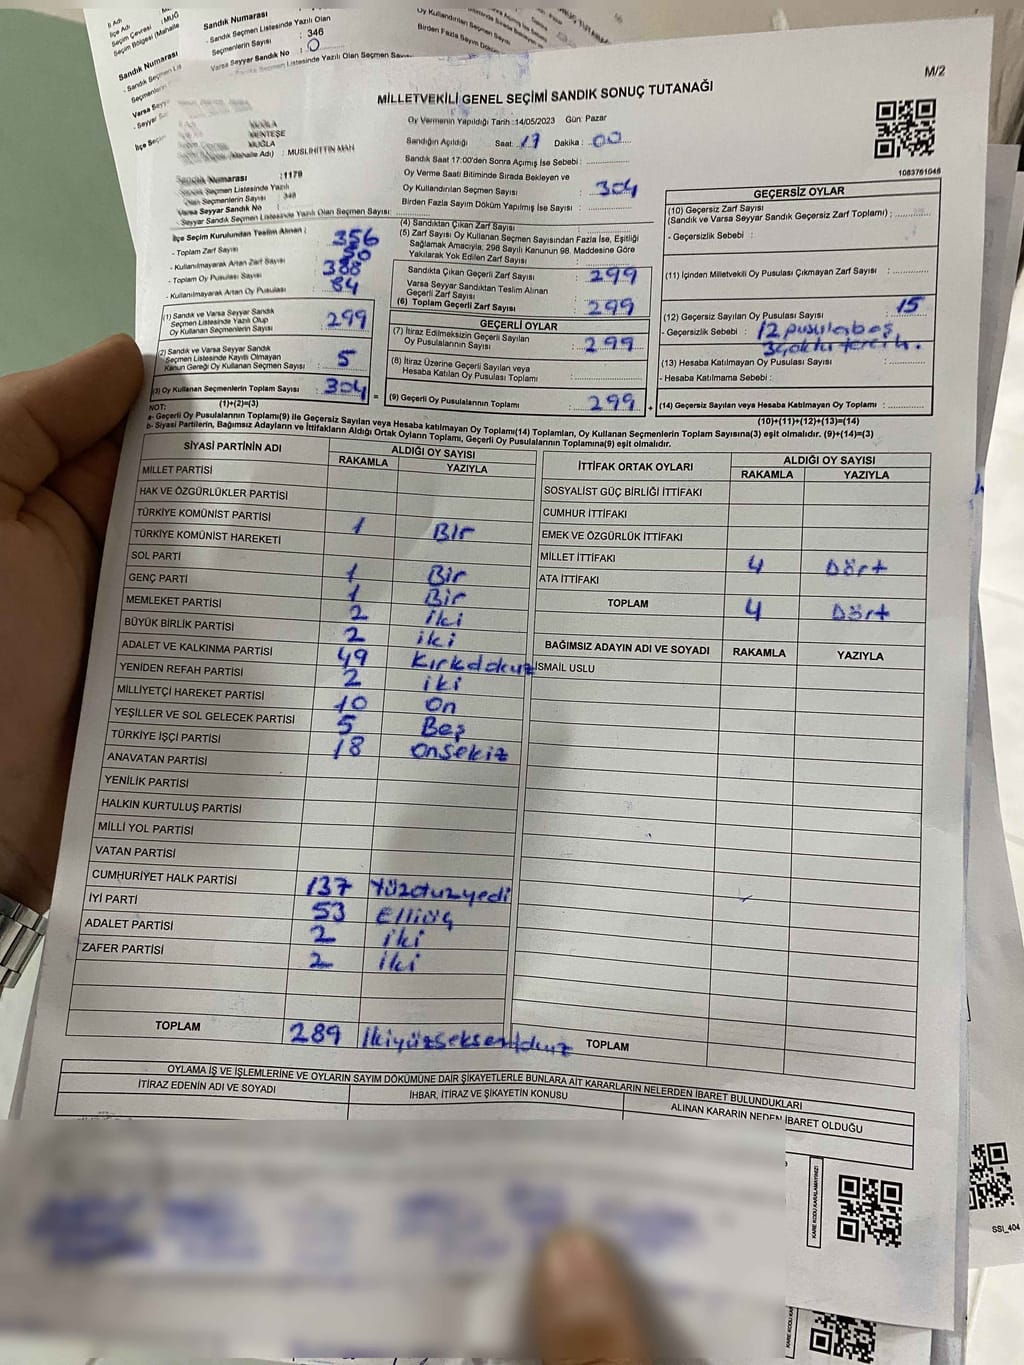 M/2
MİLLETVEKİLİ GENEL SEÇİMİ SANDIK SONUÇ TUTANAĞI
Sandık Numarası
- Sandık Seçmen Listesinde Yazılı Olan : 346
Seçmenlerin Sayısı
Varsa Seyyar Sandık No : 0
MUĞLA
MENTEŞE
MUĞLA
(Mahalle Adı) : MUSLİHİTTİN MAH
Sandık Numarası :1179
Sandık Seçmen Listesinde Yazılı
Olan Seçmenlerin Sayısı : 346
Varsa Seyyar Sandık No :
- Seyyar Sandık Seçmen Listesinde Yazılı Olan Seçmen Sayısı:
Oy Vermenin Yapıldığı Tarih :14/05/2023 Gün: Pazar
Sandığın Açıldığı Saat: 17 Dakika : 00
Sandık Saat 17:00'den Sonra Açımış İse Sebebi :
Oy Verme Saati Bitiminde Sırada Bekleyen ve
Oy Kullandırılan Seçmen Sayısı : 304
Birden Fazla Sayım Döküm Yapılmış İse Sayısı :
1083761046
İlçe Seçim Kurulundan Teslim Alınan ;
- Toplam Zarf Sayısı : 356
- Kullanılmayarak Artan Zarf Sayısı :
- Toplam Oy Pusulası Sayısı : 388
- Kullanılmayarak Artan Oy Pusulası : 84
(1) Sandık ve Varsa Seyyar Sandık
Seçmen Listesinde Yazılı Olup
Oy Kullanan Seçmenlerin Sayısı : 299
(2) Sandık ve Varsa Seyyar Sandık
Seçmen Listesinde Kayıtlı Olmayan
Kanun Gereği Oy Kullanan Seçmen Sayısı : 5
(3) Oy Kullanan Seçmenlerin Toplam Sayısı : 304 =
(1)+(2)=(3)
(4) Sandıktan Çıkan Zarf Sayısı :
(5) Zarf Sayısı Oy Kullanan Seçmen Sayısından Fazla İse, Eşitliği
Sağlamak Amacıyla, 298 Sayılı Kanunun 98. Maddesine Göre
Yakılarak Yok Edilen Zarf Sayısı :
Sandıkta Çıkan Geçerli Zarf Sayısı : 299
Varsa Seyyar Sandıktan Teslim Alınan
Geçerli Zarf Sayısı :
(6) Toplam Geçerli Zarf Sayısı : 299
GEÇERLİ OYLAR
(7) İtiraz Edilmeksizin Geçerli Sayılan
Oy Pusulalarının Sayısı : 299
(8) İtiraz Üzerine Geçerli Sayılan veya
Hesaba Katılan Oy Pusulası Toplamı :
(9) Geçerli Oy Pusulalarının Toplamı : 299 +
GEÇERSİZ OYLAR
(10) Geçersiz Zarf Sayısı
(Sandık ve Varsa Seyyar Sandık Geçersiz Zarf Toplamı) :
- Geçersizlik Sebebi :
(11) İçinden Milletvekili Oy Pusulası Çıkmayan Zarf Sayısı :
(12) Geçersiz Sayılan Oy Pusulası Sayısı : 15
- Geçersizlik Sebebi : 12 pusula boş
3 çoklu tercih.
(13) Hesaba Katılmayan Oy Pusulası Sayısı :
- Hesaba Katılmama Sebebi :
(14) Geçersiz Sayılan veya Hesaba Katılmayan Oy Toplamı :
(10)+(11)+(12)+(13)=(14)
NOT:
a- Geçerli Oy Pusulalarının Toplamı(9) ile Geçersiz Sayılan veya Hesaba katılmayan Oy Toplamı(14) Toplamları, Oy Kullanan Seçmenlerin Toplam Sayısına(3) eşit olmalıdır. (9)+(14)=(3)
b- Siyasi Partilerin, Bağımsız Adayların ve İttifakların Aldığı Ortak Oyların Toplamı, Geçerli Oy Pusulalarının Toplamına(9) eşit olmalıdır.
SİYASİ PARTİNİN ADI ALDIĞI OY SAYISI
RAKAMLA YAZIYLA
MİLLET PARTİSİ
HAK VE ÖZGÜRLÜKLER PARTİSİ
TÜRKİYE KOMÜNİST PARTİSİ
TÜRKİYE KOMÜNİST HAREKETİ 1 Bir
SOL PARTİ
GENÇ PARTİ 1 Bir
MEMLEKET PARTİSİ 1 Bir
BÜYÜK BİRLİK PARTİSİ 2 iki
ADALET VE KALKINMA PARTİSİ 2 iki
YENİDEN REFAH PARTİSİ 49 Kırkdokuz
MİLLİYETÇİ HAREKET PARTİSİ 2 iki
YEŞİLLER VE SOL GELECEK PARTİSİ 10 On
TÜRKİYE İŞÇİ PARTİSİ 5 Beş
ANAVATAN PARTİSİ 18 Onsekiz
YENİLİK PARTİSİ
HALKIN KURTULUŞ PARTİSİ
MİLLİ YOL PARTİSİ
VATAN PARTİSİ
CUMHURİYET HALK PARTİSİ 137 Yüzotuzyedi
İYİ PARTİ 53 Elliüç
ADALET PARTİSİ 2 iki
ZAFER PARTİSİ 2 iki
TOPLAM 289 İkiyüzseksendokuz
İTTİFAK ORTAK OYLARI ALDIĞI OY SAYISI
RAKAMLA YAZIYLA
SOSYALİST GÜÇ BİRLİĞİ İTTİFAKI
CUMHUR İTTİFAKI
EMEK VE ÖZGÜRLÜK İTTİFAKI
MİLLET İTTİFAKI 4 Dört
ATA İTTİFAKI
TOPLAM 4 Dört
BAĞIMSIZ ADAYIN ADI VE SOYADI RAKAMLA YAZIYLA
İSMAİL USLU
TOPLAM
OYLAMA İŞ VE İŞLEMLERİNE VE OYLARIN SAYIM DÖKÜMÜNE DAİR ŞİKAYETLERLE BUNLARA AİT KARARLARIN NELERDEN İBARET BULUNDUKLARI
İTİRAZ EDENİN ADI VE SOYADI İHBAR, İTİRAZ VE ŞİKAYETİN KONUSU ALINAN KARARIN NEDEN İBARET OLDUĞU
KARE KODU KARALAMAYINIZ!
SSI_404